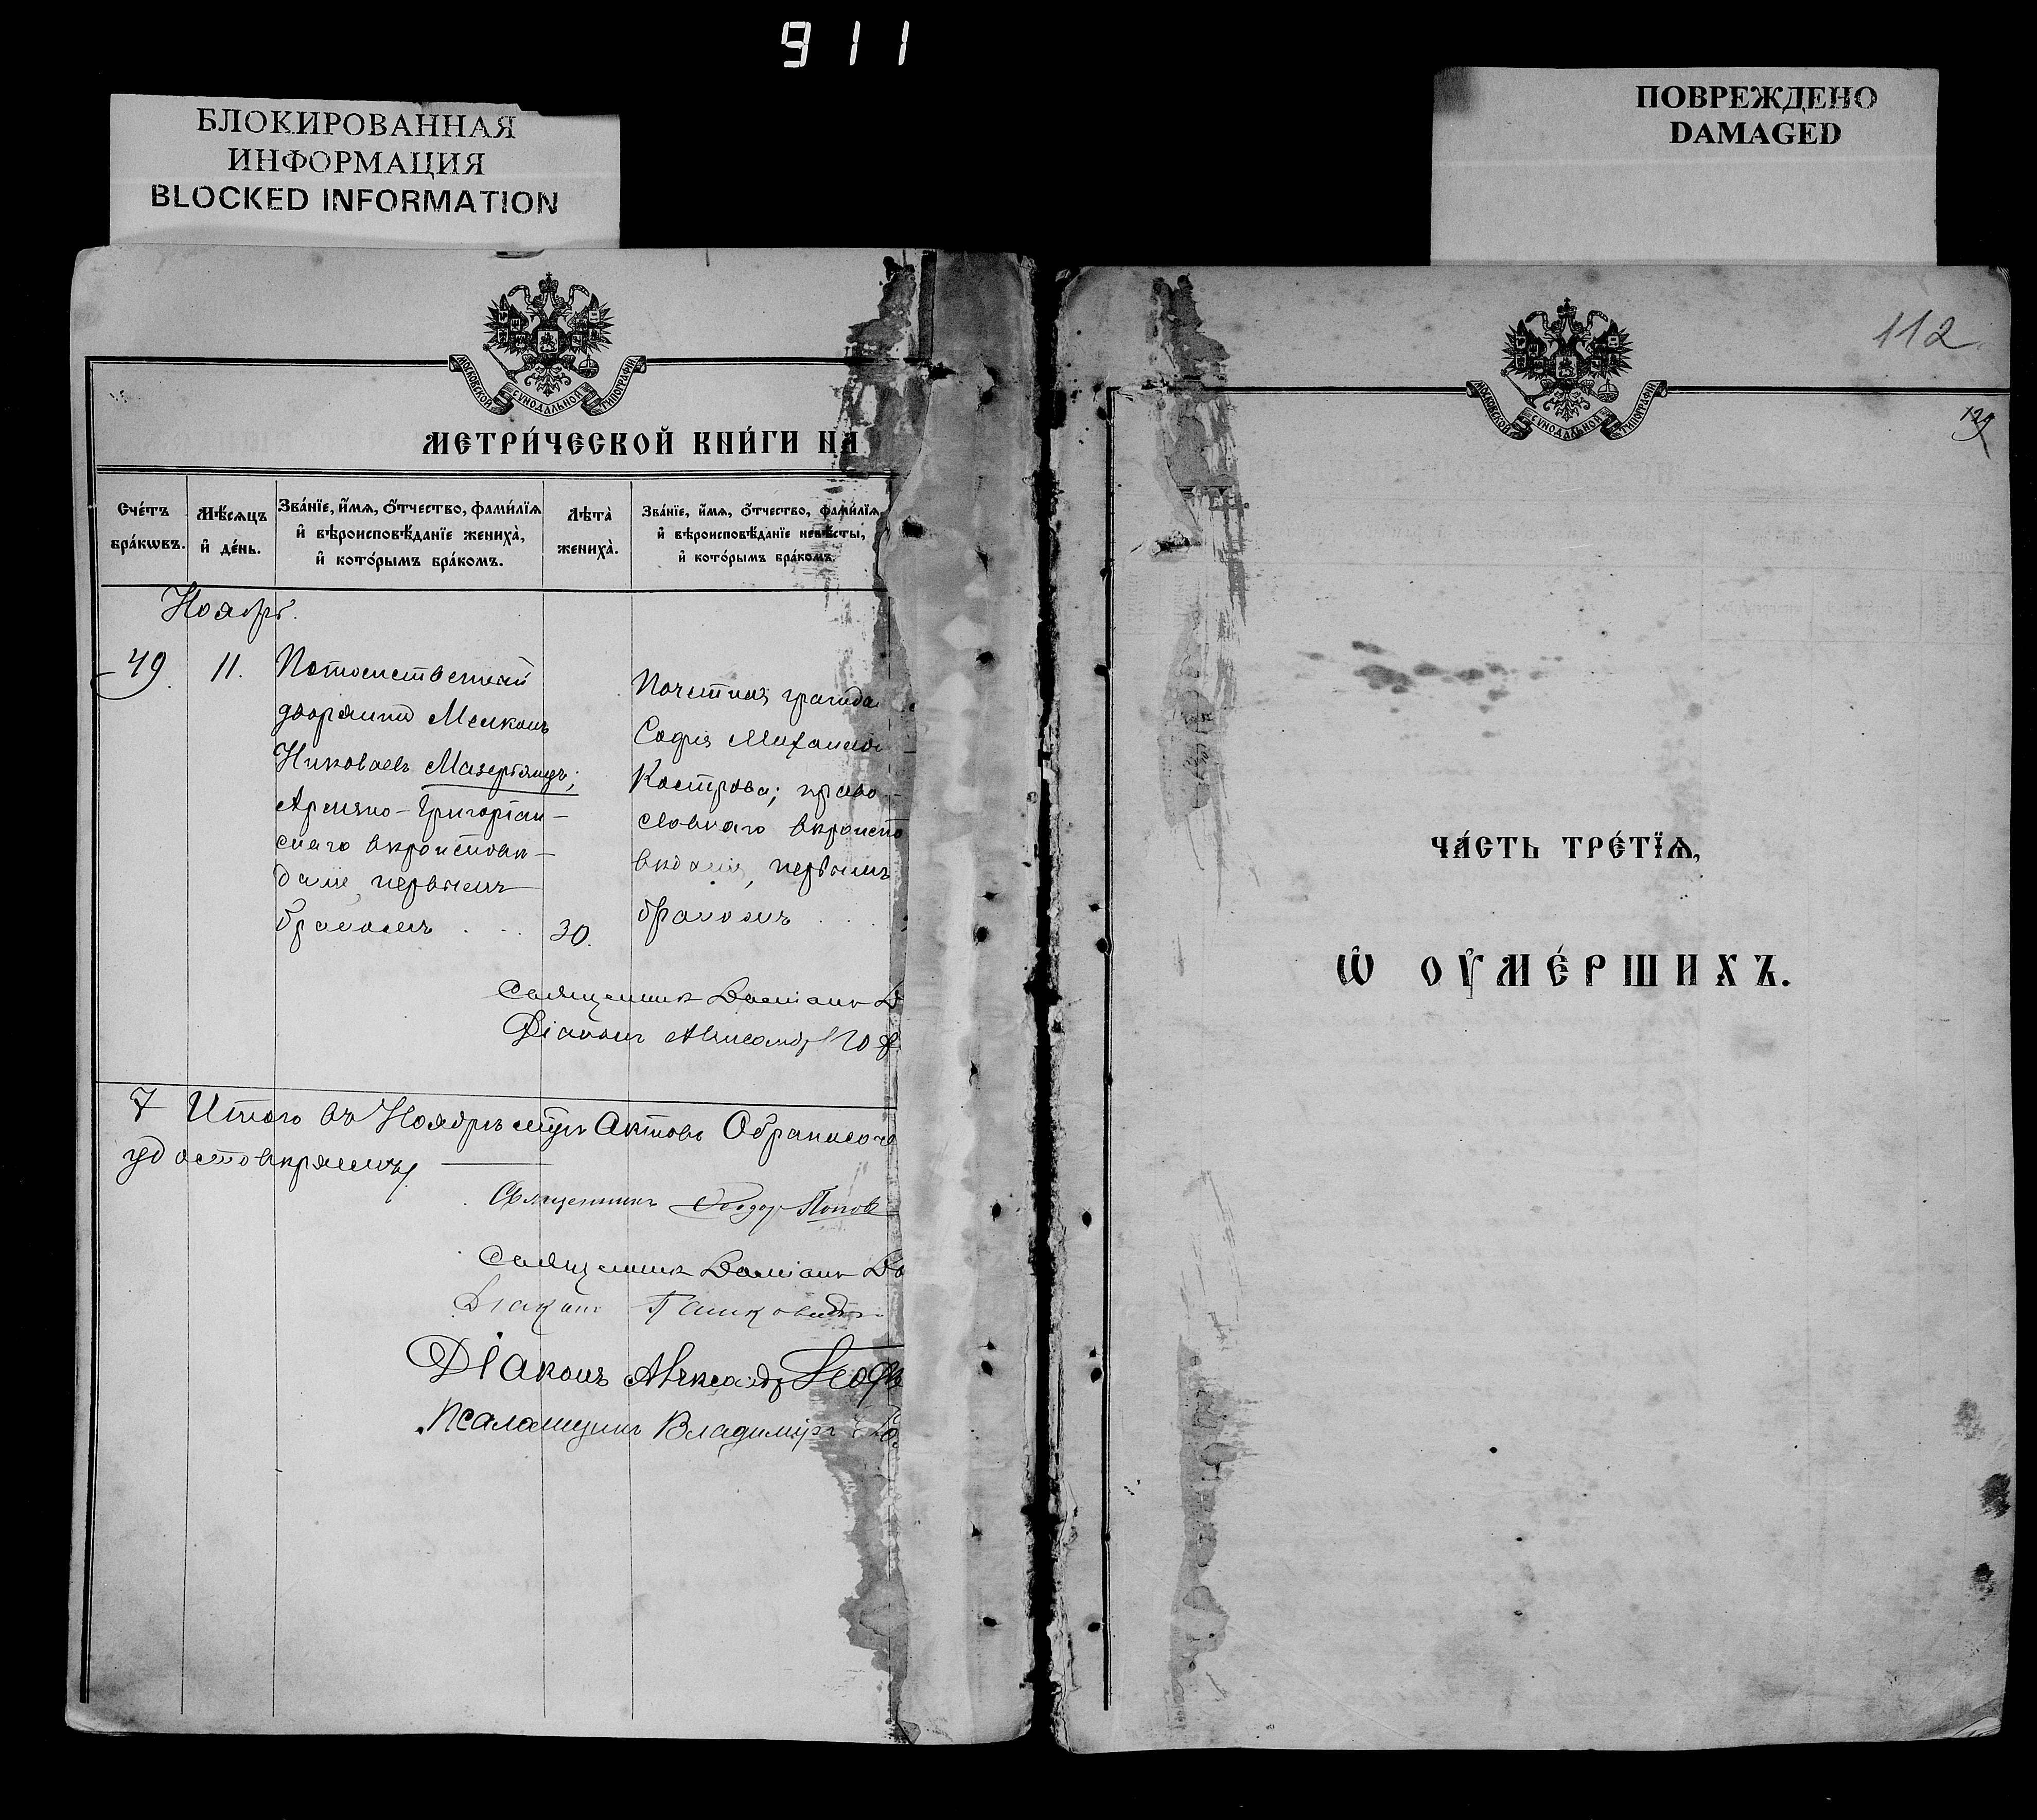 911
БЛОКИРОВАННАЯ
ИНФОРМАЦИЯ
BLOCKED INFORMATION
ПОВРЕЖДЕНО
DAMAGED
МОСКОВСКОЙ СѴНОДАЛЬНОЙ ТИПОГРАФІИ
МЕТРИ́ЧЕСКОЙ КНИ́ГИ НА
Сче́тъ бра́кѡвъ.
Мѣ́сяцъ и҆ де́нь.
Зва́нїе, и҆́мя, ѻ҆́тчество, фами́лїя и҆ вѣроисповѣ́данїе жениха̀, и҆ кото́рымъ бра́комъ.
Лѣта̀ жениха̀.
Зва́нїе, и҆́мя, ѻ҆́тчество, фами́лїя и҆ вѣроисповѣ́данїе невѣ́сты, и҆ кото́рымъ бра́комъ.
Ноябрь.
49. 11. Потомственный
дворянинъ Мелконъ
Николаевъ Мазертянцъ;
Армяно-Григоріан-
скаго вѣроисповѣ-
данія, первымъ
бракомъ 30.
Почетная гражда
София Михайло
Кострова; право-
славнаго вѣроиспо
вѣданія, первымъ
бракомъ
Священникъ Даміанъ
Діаконъ Александръ
7 Итого въ Ноябрѣ мцѣ Актовъ О бракосоче
удостовѣряемъ
Священникъ Ѳеодоръ Попов
Священникъ Даміанъ
Діаконъ
Діаконъ Александръ
Псаломщикъ Владиміръ
112
МОСКОВСКОЙ СѴНОДАЛЬНОЙ ТИПОГРАФІИ
ЧА́СТЬ ТРЕ́ТЇѦ,
Ѡ҆ ОУ҆МЕ́РШИХЪ.